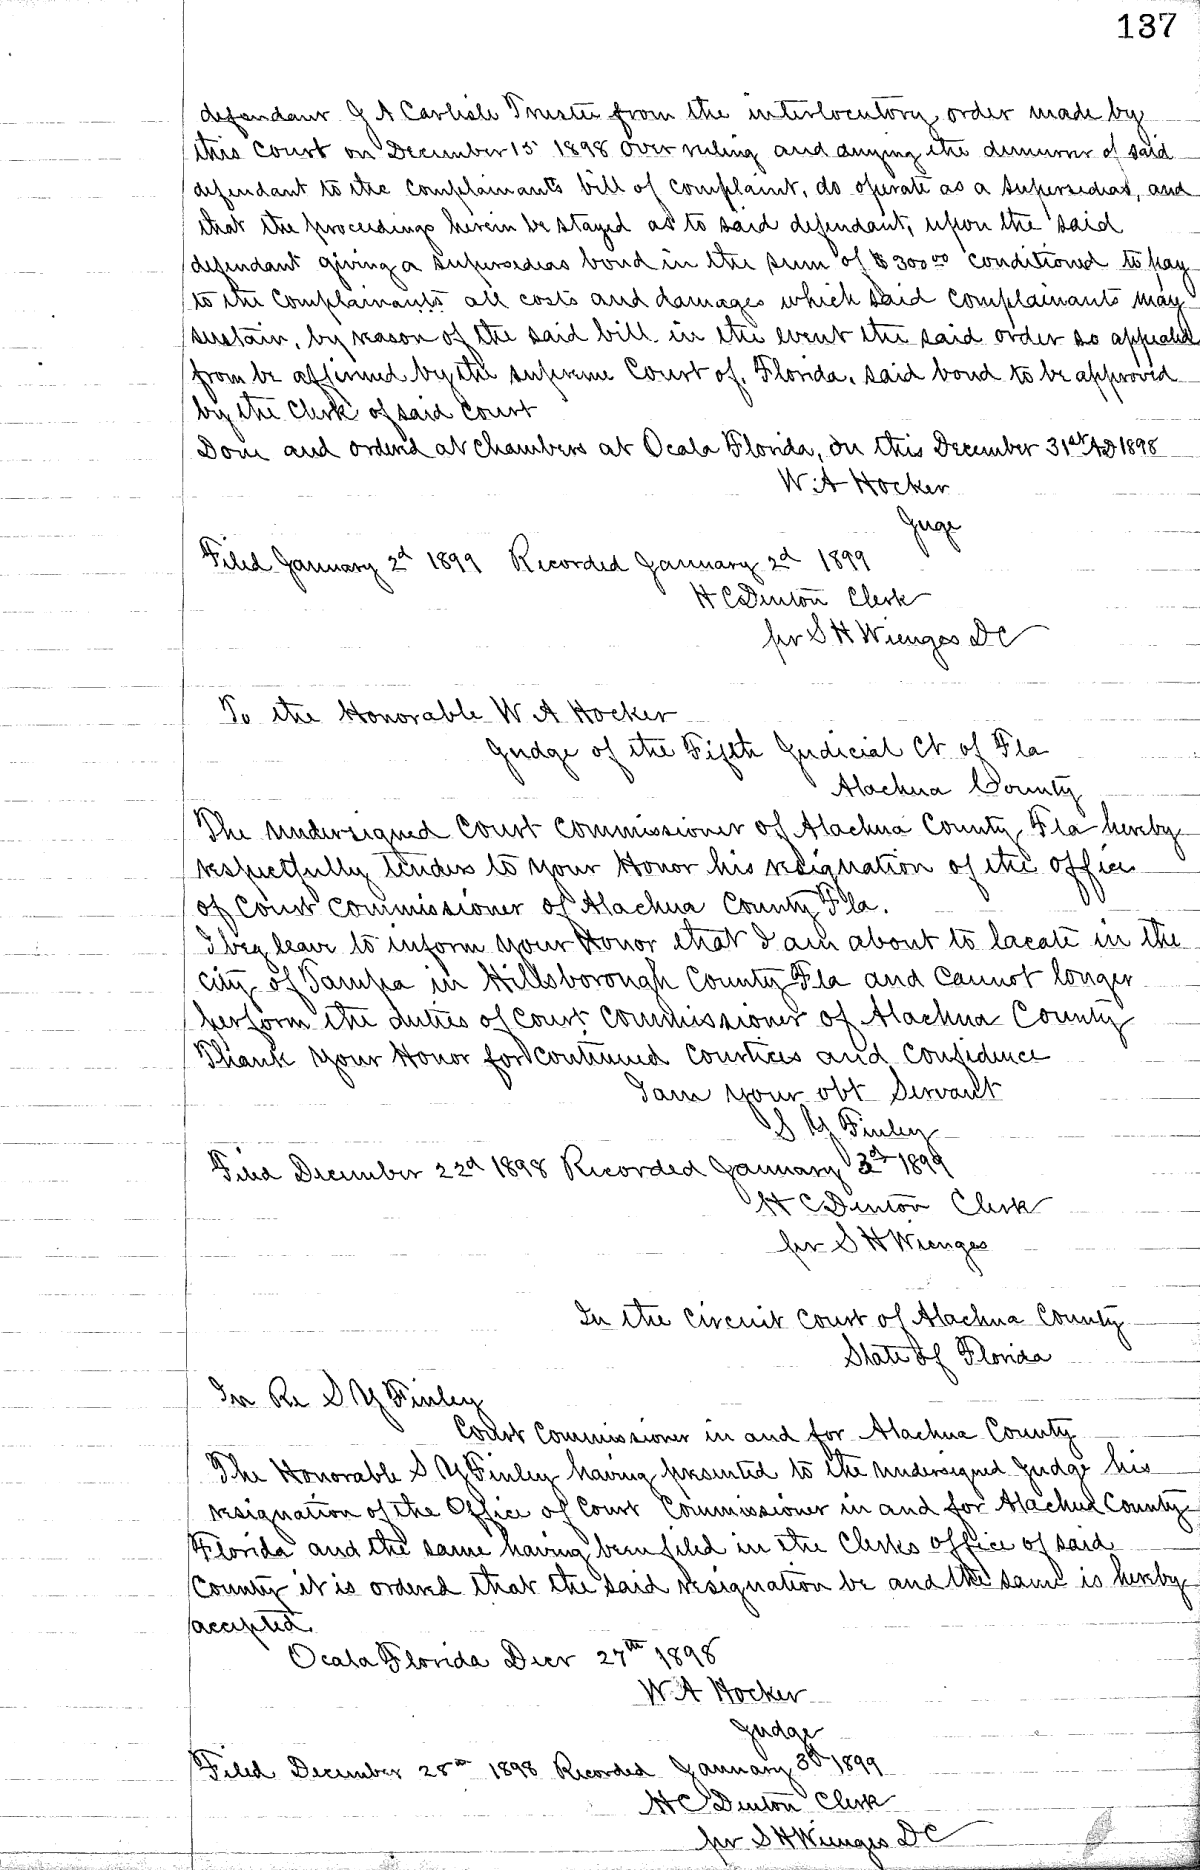 137
defendant J A Carlisle Trustee from the interlocutory order made by
this Court on December 15 1898 over ruling and denying the demurrer of said
defendant to the complainants bill of complaint, do operate as a supersedias, and
that the proceedings herein be stayed as to said defendant, upon the said
defendant giving a supersedeas bond in the sum of $300 00 conditioned to pay
to the complainants all costs and damages which said complainants may
sustain, by reason of the said bill in the event the said order so appealed
from be affirmed by the supreme Court of. Florida. said bond to be approved
by the Clerk of said court
Done and ordered at chambers at Ocala Florida, on this December 31st AD 1898
W. A Hocker
Juge
Filed January 2d 1899 Recorded January 2d 1899
H C Denton Clerk
per S H Wienges DC
To the Honorable W A Hocker
Judge of the Fifth Judicial Ct of Fla
Alachua County
The undersigned Court Commissioner of Alachua County Fla hereby
respectfully tenders to your Honor his resignation of the office
of Court Commissioner of Alachua County Fla.
I beg leave to inform your Honor that I am about to lacate in the
city of Tampa in Hillsborough County Fla and cannot longer
perform the duties of Court Commissioner of Alachua County
Thank your Honor for continued courtices and confidence
I am your obt Servant
S Y Finley
Filed December 22d 1898 Recorded January 3d 1899
H C Denton Clerk
per S H Wienges
In the Circuit Court of Alachua County
State of Florida
In Re S Y Finley
Court Commissioner in and for Alachua County
The Honorable S Y Finley having presented to the undersigned Judge his
resignation of the Office of Court Commissioner in and for Alachua County
Florida and the same having been filed in the Clerks office of said
County it is ordered that the said resignation be and the same is hereby
accepted.
Ocala Florida Decr 27th 1898
W A Hocker
Judge
Filed December 28th 1898 Recorded January 3d 1899
H C Denton Clerk
per S H Wienges DC